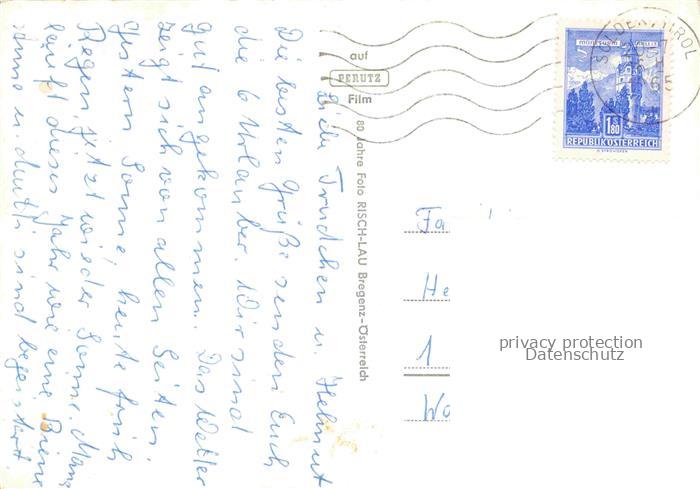 Liebe Trudchen u. Helmut
Die besten Grüße senden Euch
die 6 Urlauber. Wir sind
gut angekommen. Das Wetter
zeigt sich von allen Seiten.
Gestern Sonne, heute früh
Regen, jetzt wieder Sonne. Mang
läuft dieses Jahr wie eine Biene
Anne u. Mutti sind begeistert.
auf
PERUTZ
Film
80 Jahre Foto RISCH-LAU Bregenz-Österreich
SÖLDEN, TIROL
65
1.80
REPUBLIK ÖSTERREICH
Fa
He
1
Wo
privacy protection
Datenschutz